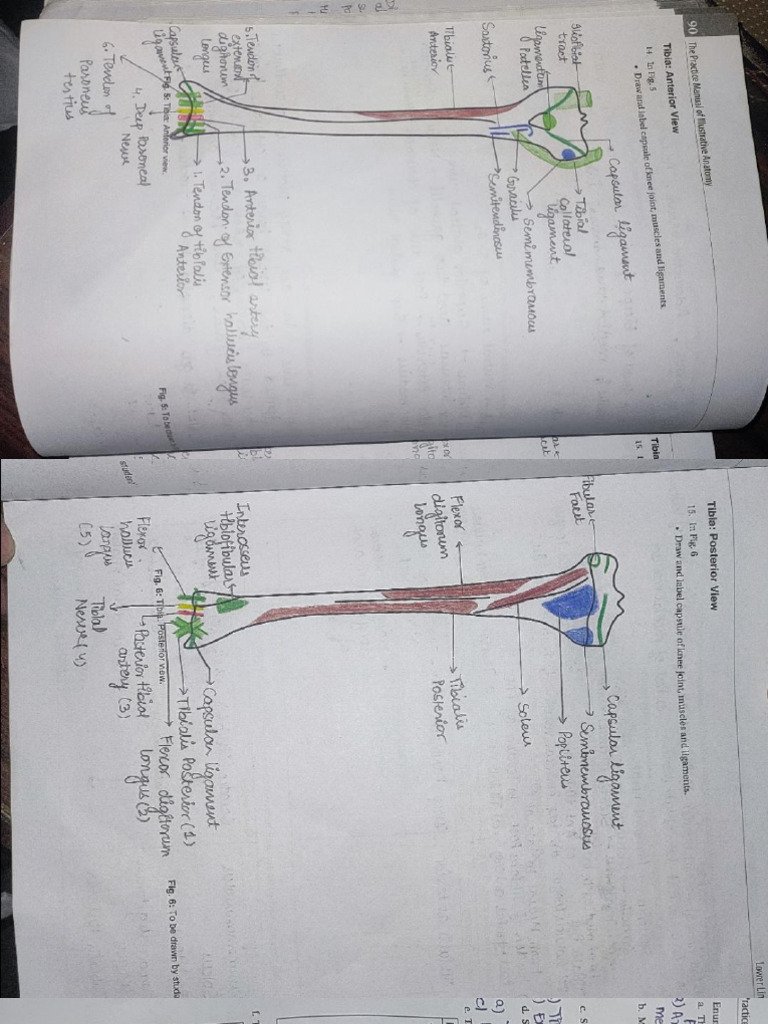 90 The Practice Manual of Illustrative Anatomy
Tibia: Anterior View
14. In Fig. 5
• Draw and label capsule of knee joint, muscles and ligaments.
Capsular ligament
tract
Ligamentum
Patellae
Tibial
Collateral
ligament
Semimembranosus
Gracilis
Sartorius
Semitendinosus
Tibialis
Anterior
5. Tendon of
extensor
digitorum
longus
3. Anterior tibial artery
2. Tendon of Extensor hallucis longus
1. Tendon of tibialis
Anterior
Capsular
ligament
Fig. 5: Tibia: Anterior view.
4. Deep Peroneal
Nerve
6. Tendon of
Peroneus
tertius
Tibia: Posterior View
15. In Fig. 6
• Draw and label capsule of knee joint, muscles and ligaments.
Fibular
Facet
Capsular ligament
Semimembranosus
Popliteus
Soleus
Flexor
digitorum
longus
Tibialis
Posterior
Interosseus
tibiofibular
ligament
Capsular ligament
Tibialis Posterior (1)
Flexor digitorum
longus (2)
Fig. 6: Tibia: Posterior view.
Posterior tibial
artery (3)
Flexor
hallucis
longus
(5)
Tibial
Nerve (4)
Fig. 6: To be drawn by stude